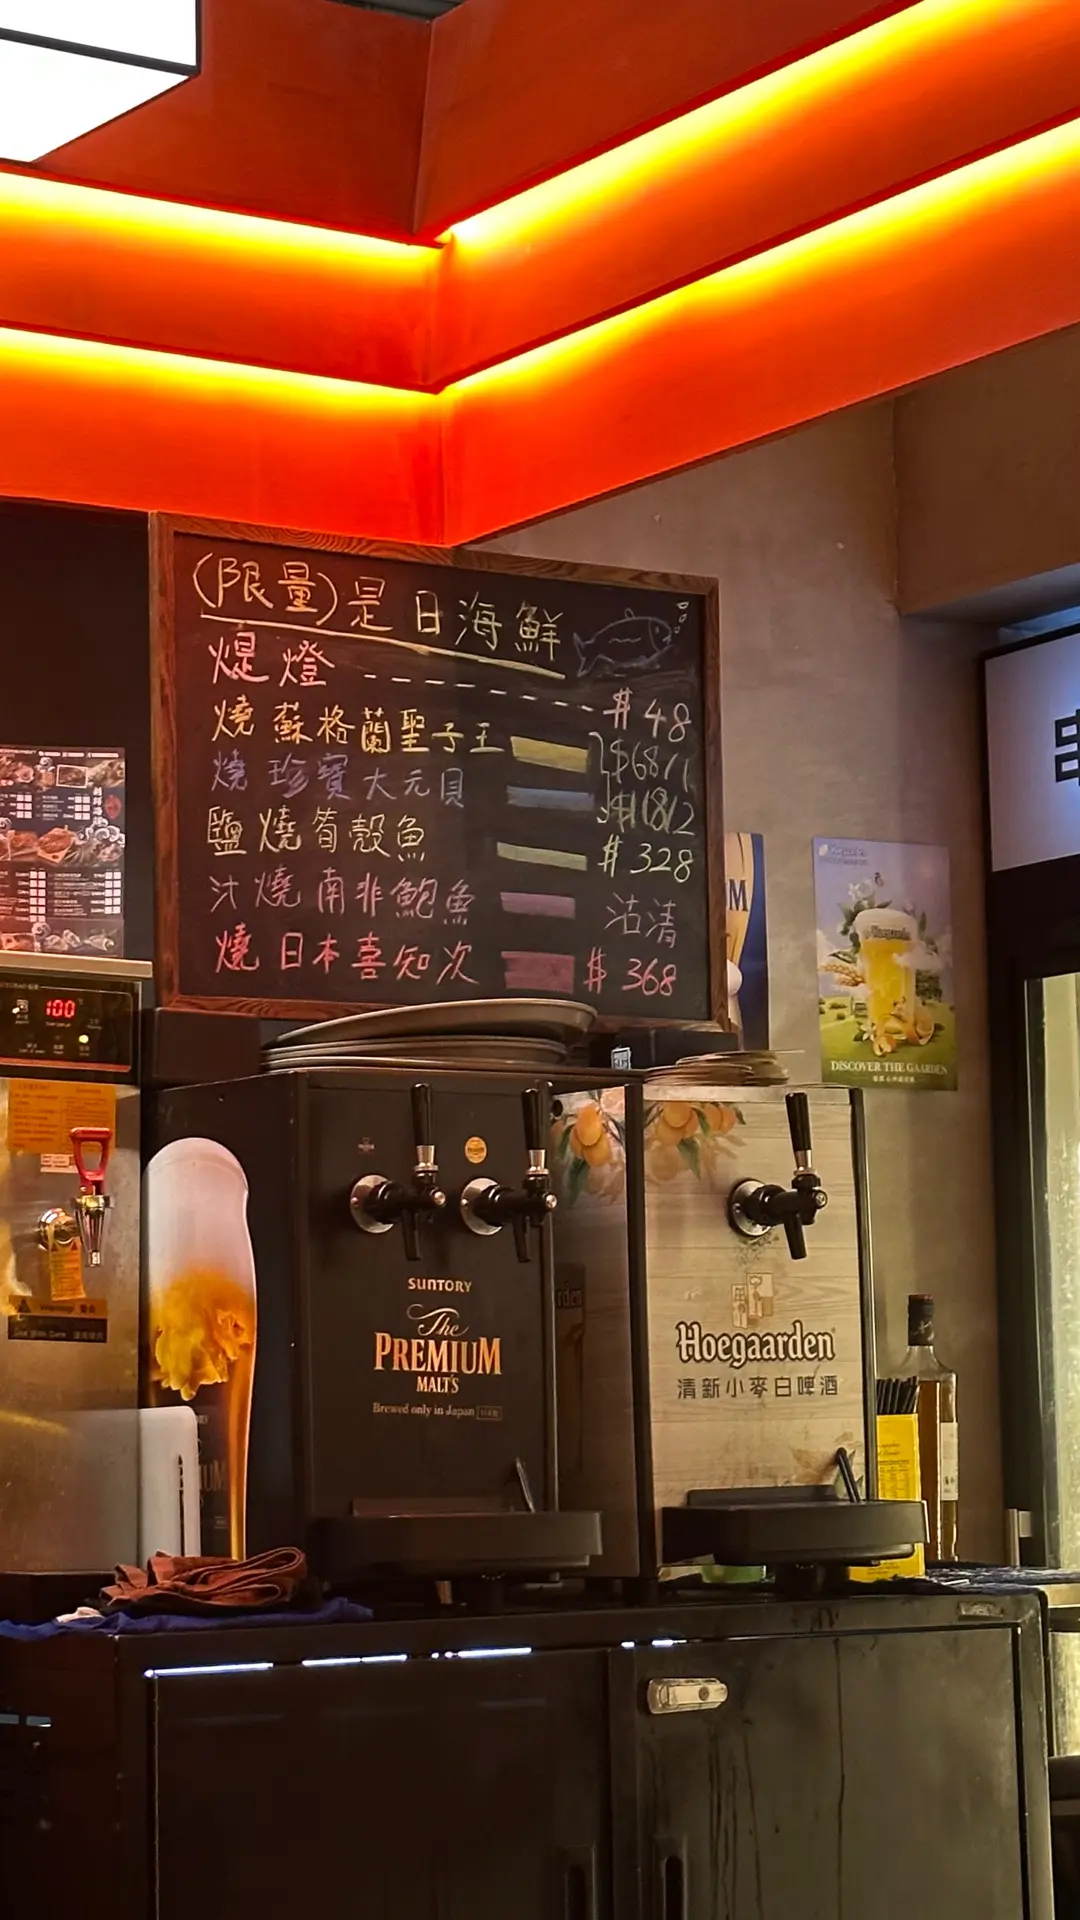 (限量)是日海鮮
煋燈 ------ $48
燒蘇格蘭聖子王 $68/1
燒珍寶大元貝 $118/2
鹽燒筍殼魚 $328
汁燒南非鮑魚 沽清
燒日本喜知次 $368
100
M
Hoegaarden
DISCOVER THE GAARDEN
串
Warning! 警告
SUNTORY
The
PREMIUM
MALT'S
Brewed only in Japan
Hoegaarden
清新小麥白啤酒